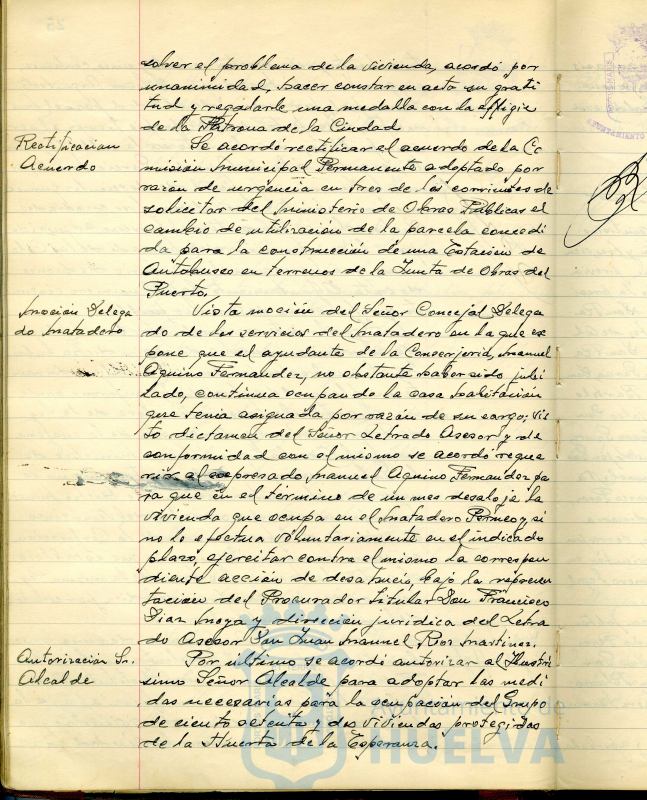 solver el problema de la vivienda, acordó por
unanimidad, hacer constar en acta su grati
tud y regalarle una medalla con la effigie
de la Patrona de la Ciudad
Rectificacion
Acuerdo
Se acordó rectificar el acuerdo de la Co
misión Municipal Permanente adoptado por
razón de urgencia en tres de los corrientes de
solicitar del Ministerio de Obras Públicas el
cambio de utilización de la parcela concedi
da para la construcción de una Estación de
Autobuses en terrenos de la Junta de Obras del
Puerto.
Moción Delega
do Matadero
Vista moción del Señor Concejal Delega
do de los servicios del Matadero en la que ex
pone que el ayudante de la Conserjería, Manuel
Aquino Fernandez, no obstante haber sido jubi
lado, continua ocupando la casa habitación
que tenia asignada por razón de su cargo; vis
to dictamen del Señor Letrado Asesor y de
conformidad con el mismo se acordó reque
rir al expresado, Manuel Aquino Fernandez pa
ra que en el término de un mes desaloje la
vivienda que ocupa en el Matadero y si
no lo efectua voluntariamente en el indicado
plazo, ejercitar contra el mismo la correspon
diente acción de desahucio, bajo la represen
tación del Procurador Titular Don Francisco
Diaz Moya y dirección jurídica del Letra
do Asesor Don Juan Manuel Roz Martinez.
Autorización Sr.
Alcalde
Por último se acordó autorizar al Ilustri
simo Señor Alcalde para adoptar las medi
das necesarias para la ocupación del Grupo
de ciento setenta y dos viviendas protegidas
de la Huerta de la Esperanza.
Ayuntamiento de
HUELVA